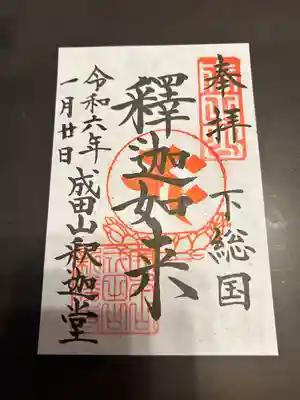 奉拝
下総国
釋迦如来
成田山釈迦堂
令和六年
一月廿日